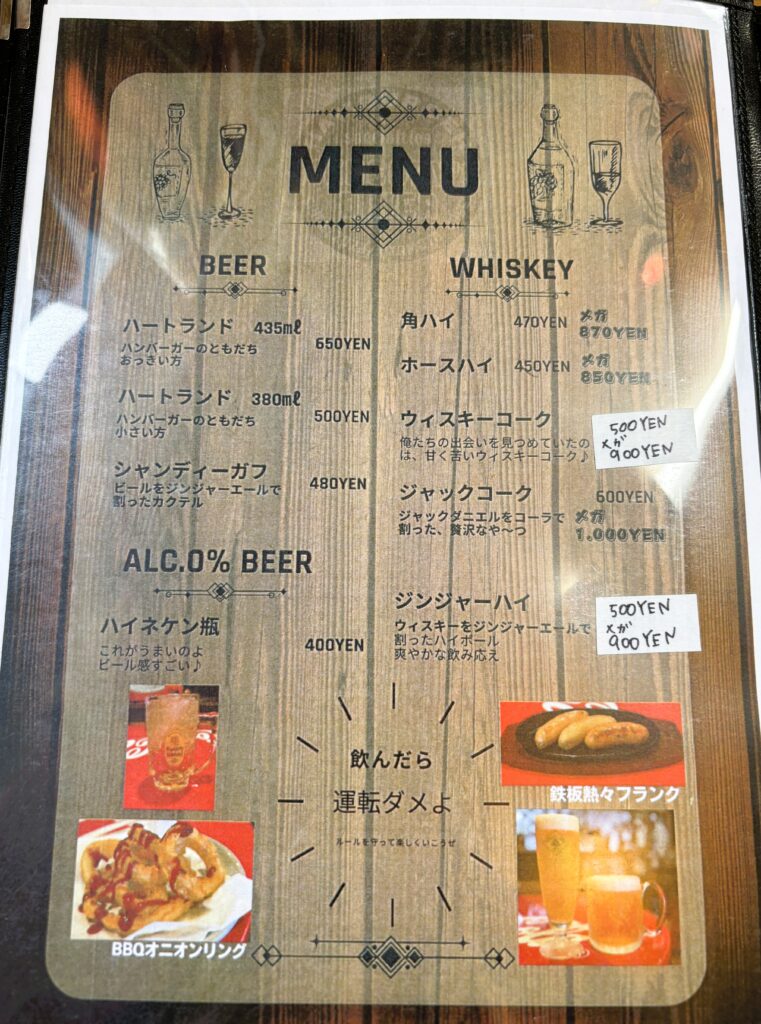 MENU
BEER
ハートランド 435mℓ
ハンバーガーのともだち
おっきい方
650YEN
ハートランド 380mℓ
ハンバーガーのともだち
小さい方
500YEN
シャンディーガフ
ビールをジンジャーエールで
割ったカクテル
480YEN
ALC.0% BEER
ハイネケン瓶
これがうまいのよ
ビール感すごい♪
400YEN
WHISKEY
角ハイ 470YEN メガ
870YEN
ホースハイ 450YEN メガ
850YEN
ウィスキーコーク
俺たちの出会いを見つめていたの
は、甘く苦いウィスキーコーク♪
500YEN
メガ
900YEN
ジャックコーク 600YEN
ジャックダニエルをコーラで
割った、贅沢なや〜つ
メガ
1.000YEN
ジンジャーハイ
ウィスキーをジンジャーエールで
割ったハイボール
爽やかな飲み応え
500YEN
メガ
900YEN
飲んだら
運転ダメよ
ルールを守って楽しくいこうぜ
鉄板熱々フランク
BBQオニオンリング